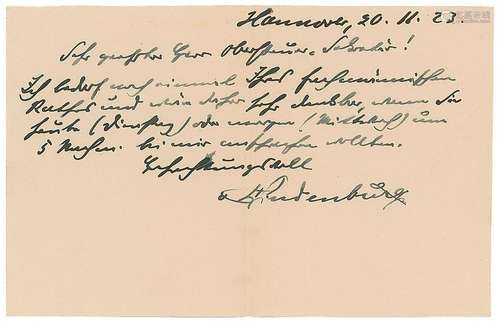 Hannover, 20. 11. 23.
Sehr geehrter Herr Obersteuer-Sekretär!
Ich bedarf noch einmal Ihres fachmännischen
Rathes und wäre daher sehr dankbar, wenn Sie
heute (Dienstag) oder morgen (Mittwoch) um
5 Nachm. bei mir vorsprechen wollten.
Hochachtungsvoll
v Hindenburg